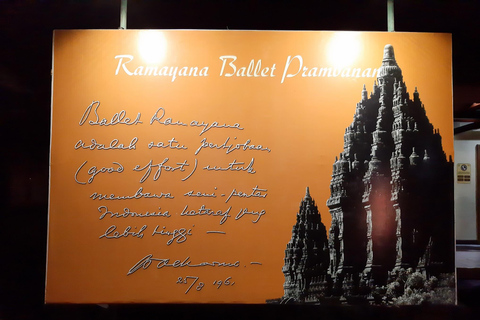 Ramayana Ballet Prambanan
Ballet Ramayana
adalah satu pertjobaan,
(good effort) untuk
membawa seni-pentas
Indonesia ketaraf yang
lebih tinggi —
Soekarno. —
25/8 1961